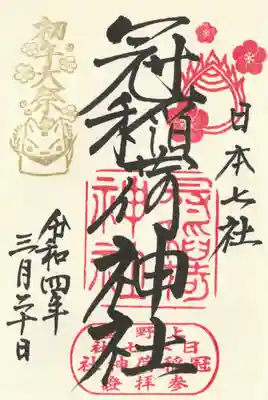 日本七社
冠稲荷神社
令和四年
三月二十日
初午大祭
冠稲荷
神社
日本七社
冠稲荷神社
参拝證